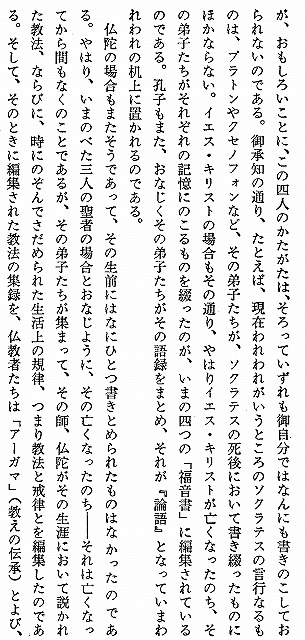 が、おもしろいことに、この四人のかたがたは、そろっていずれも御自分ではなんにも書きのこしてお
られないのである。御承知の通り、たとえば、現在われわれがいうところのソクラテスの言行なるも
のは、プラトンやクセノフォンなど、その弟子たちが、ソクラテスの死後において書き綴ったものに
ほかならない。イエス・キリストの場合もその通り、やはりイエス・キリストが亡くなったのち、そ
の弟子たちがそれぞれの記憶にのこるものを綴ったのが、いまの四つの「福音書」に編集されている
のである。孔子もまた、おなじくその弟子たちがその語録をまとめ、それが『論語』となっていまわ
れわれの机上に置かれるのである。
仏陀の場合もまたそうであって、その生前にはなにひとつ書きとめられたものはなかったのであ
る。やはり、いまのべた三人の聖者の場合とおなじように、その亡くなったのち――それは亡くなっ
てから間もなくのことであるが、その弟子たちが集まって、その師、仏陀がその生涯において説かれ
た教法、ならびに、時にのぞんでさだめられた生活上の規律、つまり教法と戒律とを編集したのであ
る。そして、そのときに編集された教法の集録を、仏教者たちは「アーガマ」(教えの伝承)とよび、